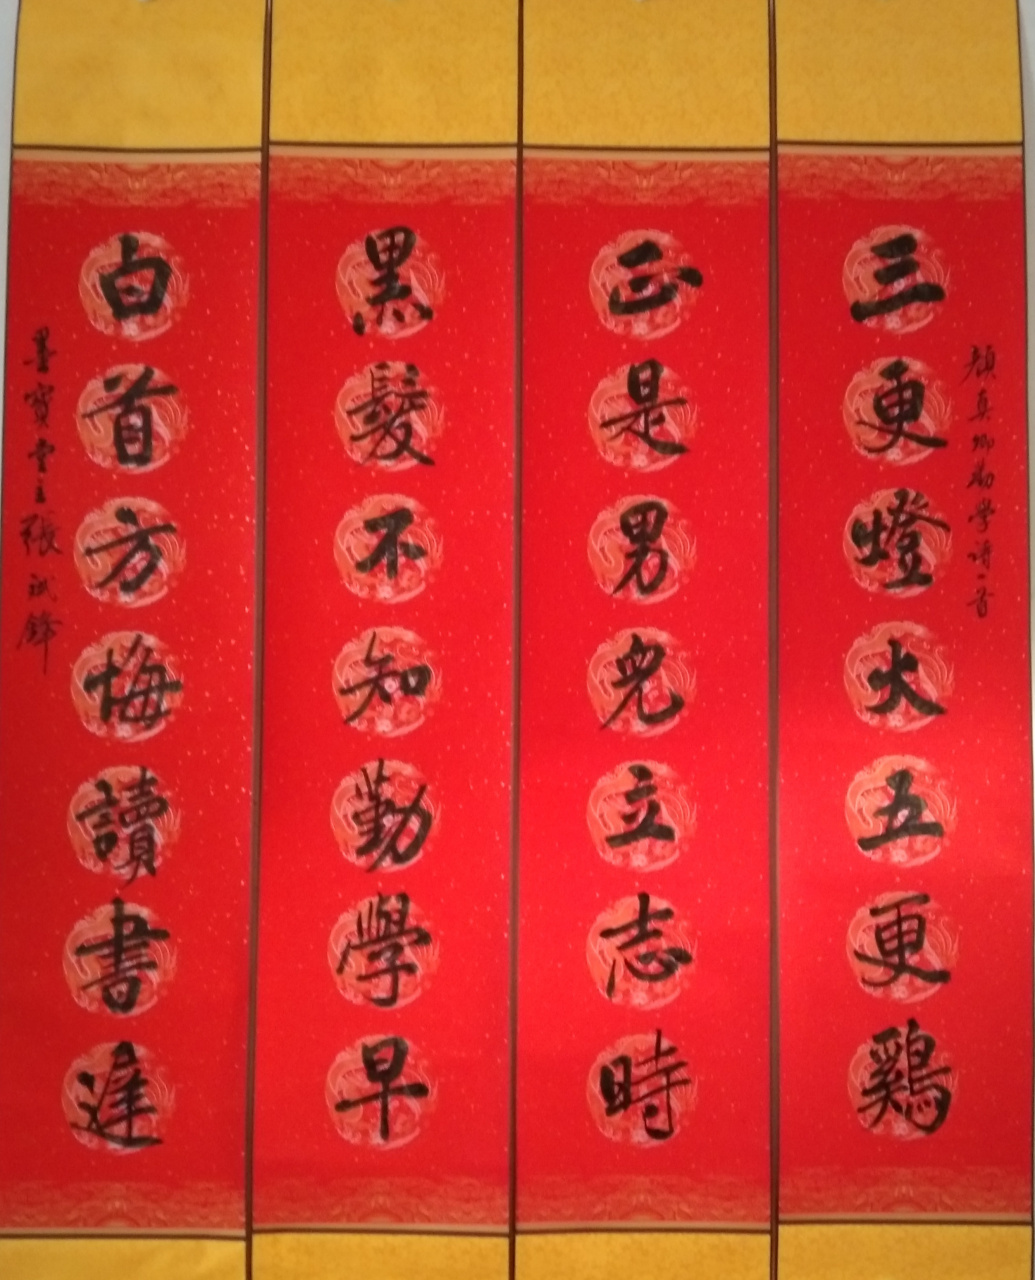 顔真卿勸學詩一首
三更燈火五更鷄
正是男兒立志時
黑髮不知勤學早
白首方悔讀書遲
墨寶堂主張斌鋒